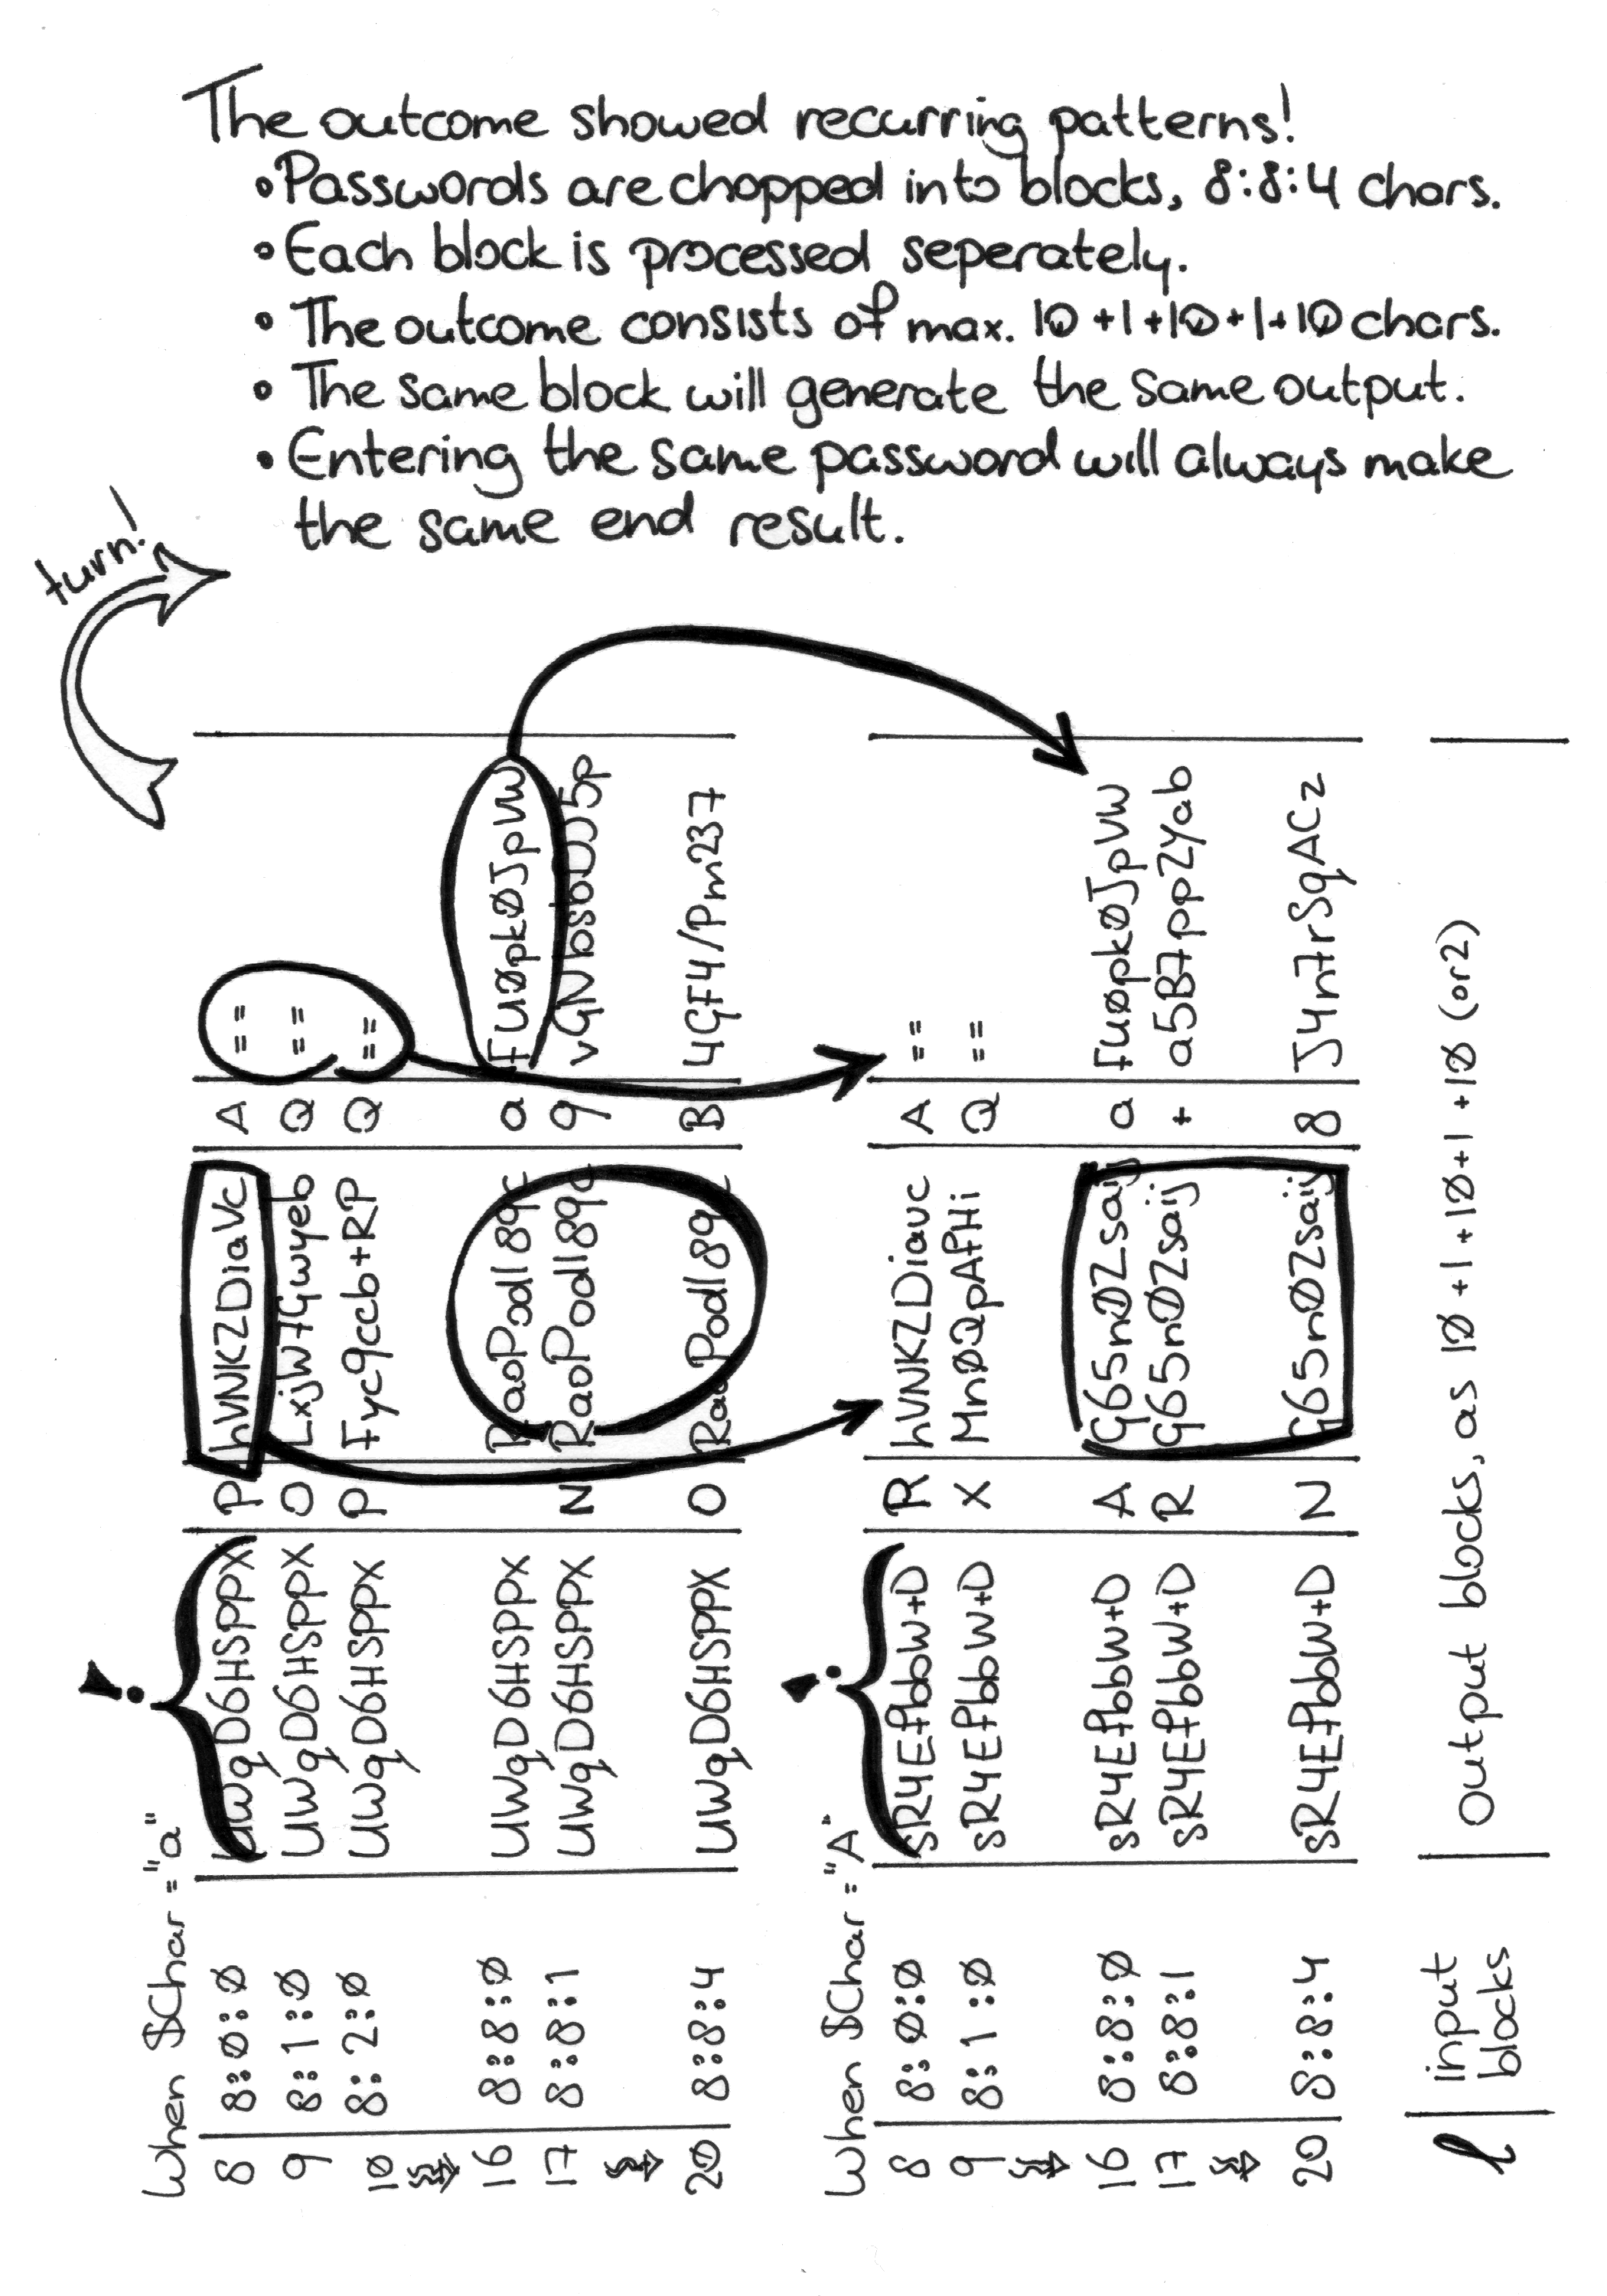 The outcome showed recurring patterns!
• Passwords are chopped into blocks, 8:8:4 chars.
• Each block is processed seperately.
• The outcome consists of max. 10+1+10+1+10 chars.
• The same block will generate the same output.
• Entering the same password will always make
the same end result.
turn!
When $Char = "a"
8 8:0:0 UWgD6HSPPX P hVNKZDiaVc A ==
9 8:1:0 UWgD6HSPPX O LxjW7Gwyeb Q ==
10 8:2:0 UWgD6HSPPX P Fyc9ccb+RP Q ==
16 8:8:0 UWgD6HSPPX RaoPodl89c a Fu0pk0JpVW
17 8:8:1 UWgD6HSPPX N RaoPodl89c 9
20 8:8:4 UWgD6HSPPX O RaoPodl89c B 4GF4/Pm237
When $Char = "A"
8 8:0:0 sR4EfbbW+D R hVNKZDiavc A ==
9 8:1:0 sR4EfbbW+D X Mn0QpAfHi Q ==
16 8:8:0 sR4EfbbW+D A G65n0Zsaij a fu0pk0JpVW
17 8:8:1 sR4EfbbW+D R G65n0Zsaij + a5B7ppZYab
20 8:8:4 sR4EfbbW+D N G65n0Zsaij 8 J4n7rSqACz
l input blocks output blocks, as 10+1+10+1+10 (or 2)